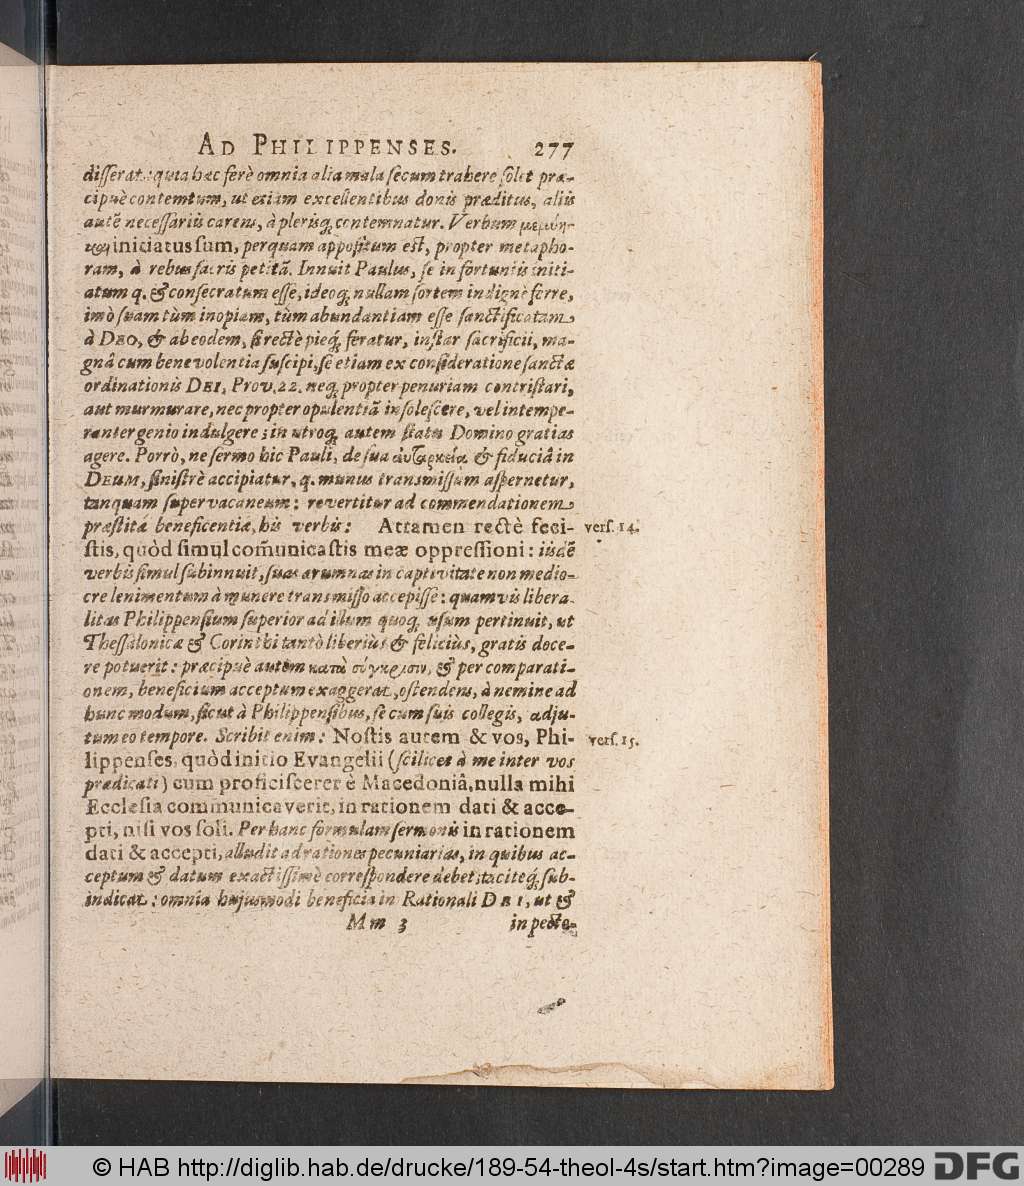 AD PHILIPPENSES. 277
disserat: quia hæc ferè omnia alia mala secum trahere solet præ-
cipuè contemtum, ut etiam excellentibus donis præditus, aliis
autē necessariis carens, à plerisq; contemnatur. Verbum μεμύη-
μαι initiatus sum, perquam appositum est, propter metapho-
ram, à rebus sacris petitā. Innuit Paulus, se infortuniis initi-
atum q. & consecratum esse, ideoq; nullam sortem indignè ferre,
imò suam tùm inopiam, tùm abundantiam esse sanctificatam
à DEO, & ab eodem, si rectè pieq; feratur, instar sacrificii, ma-
gnâ cum benevolentia suscipi, se etiam ex consideratione sanctæ
ordinationis DEI, Prov. 22. neq; propter penuriam contristari,
aut murmurare, nec propter opulentiā insolescere, vel intempe-
ranter genio indulgere; in utroq; autem statu Domino gratias
agere. Porrò, ne sermo hic Pauli, de sua αὐταρκείᾳ & fiduciâ in
DEUM, sinistrè accipiatur, q. munus transmissum aspernetur,
tanquam supervacaneum: revertitur ad commendationem
præstitæ beneficentiæ, his verbis: Attamen rectè feci- vers. 14.
stis, quòd simul com̄unicastis meæ oppressioni: iisdē
verbis simul subinnuit, suas ærumnas in captivitate non medio-
cre lenimentum à munere transmisso accepisse: quamvis libera-
litas Philippensium superior ad illum quoq; usum pertinuit, ut
Thessalonicæ & Corinthi tantò liberiùs & feliciùs, gratis doce-
re potuerit: præcipuè autem κατὰ σύγκρισιν, & per comparati-
onem, beneficium acceptum exaggerat, ostendens, à nemine ad
hunc modum, sicut à Philippensibus, se cum suis collegis, adju-
tum eo tempore. Scribit enim: Nostis autem & vos, Phi- vers. 15.
lippenses, quòd initio Evangelii (scilicet à me inter vos
prædicati) cum proficiscerer è Macedoniâ, nulla mihi
Ecclesia communicaverit, in rationem dati & acce-
pti, nisi vos soli. Per hanc formulam sermonis in rationem
dati & accepti, alludit ad rationes pecuniarias, in quibus ac-
ceptum & datum exactissimè correspondere debet; taciteq; sub-
indicat: omnia hujusmodi beneficia in Rationali DEI, ut &
Mm 3 in pecto-
© HAB http://diglib.hab.de/drucke/189-54-theol-4s/start.htm?image=00289 DFG